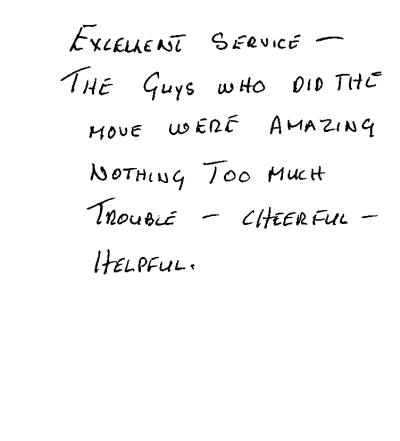 Excellent Service –
The Guys who did the
move were Amazing
Nothing Too Much
Trouble – Cheerful –
Helpful.